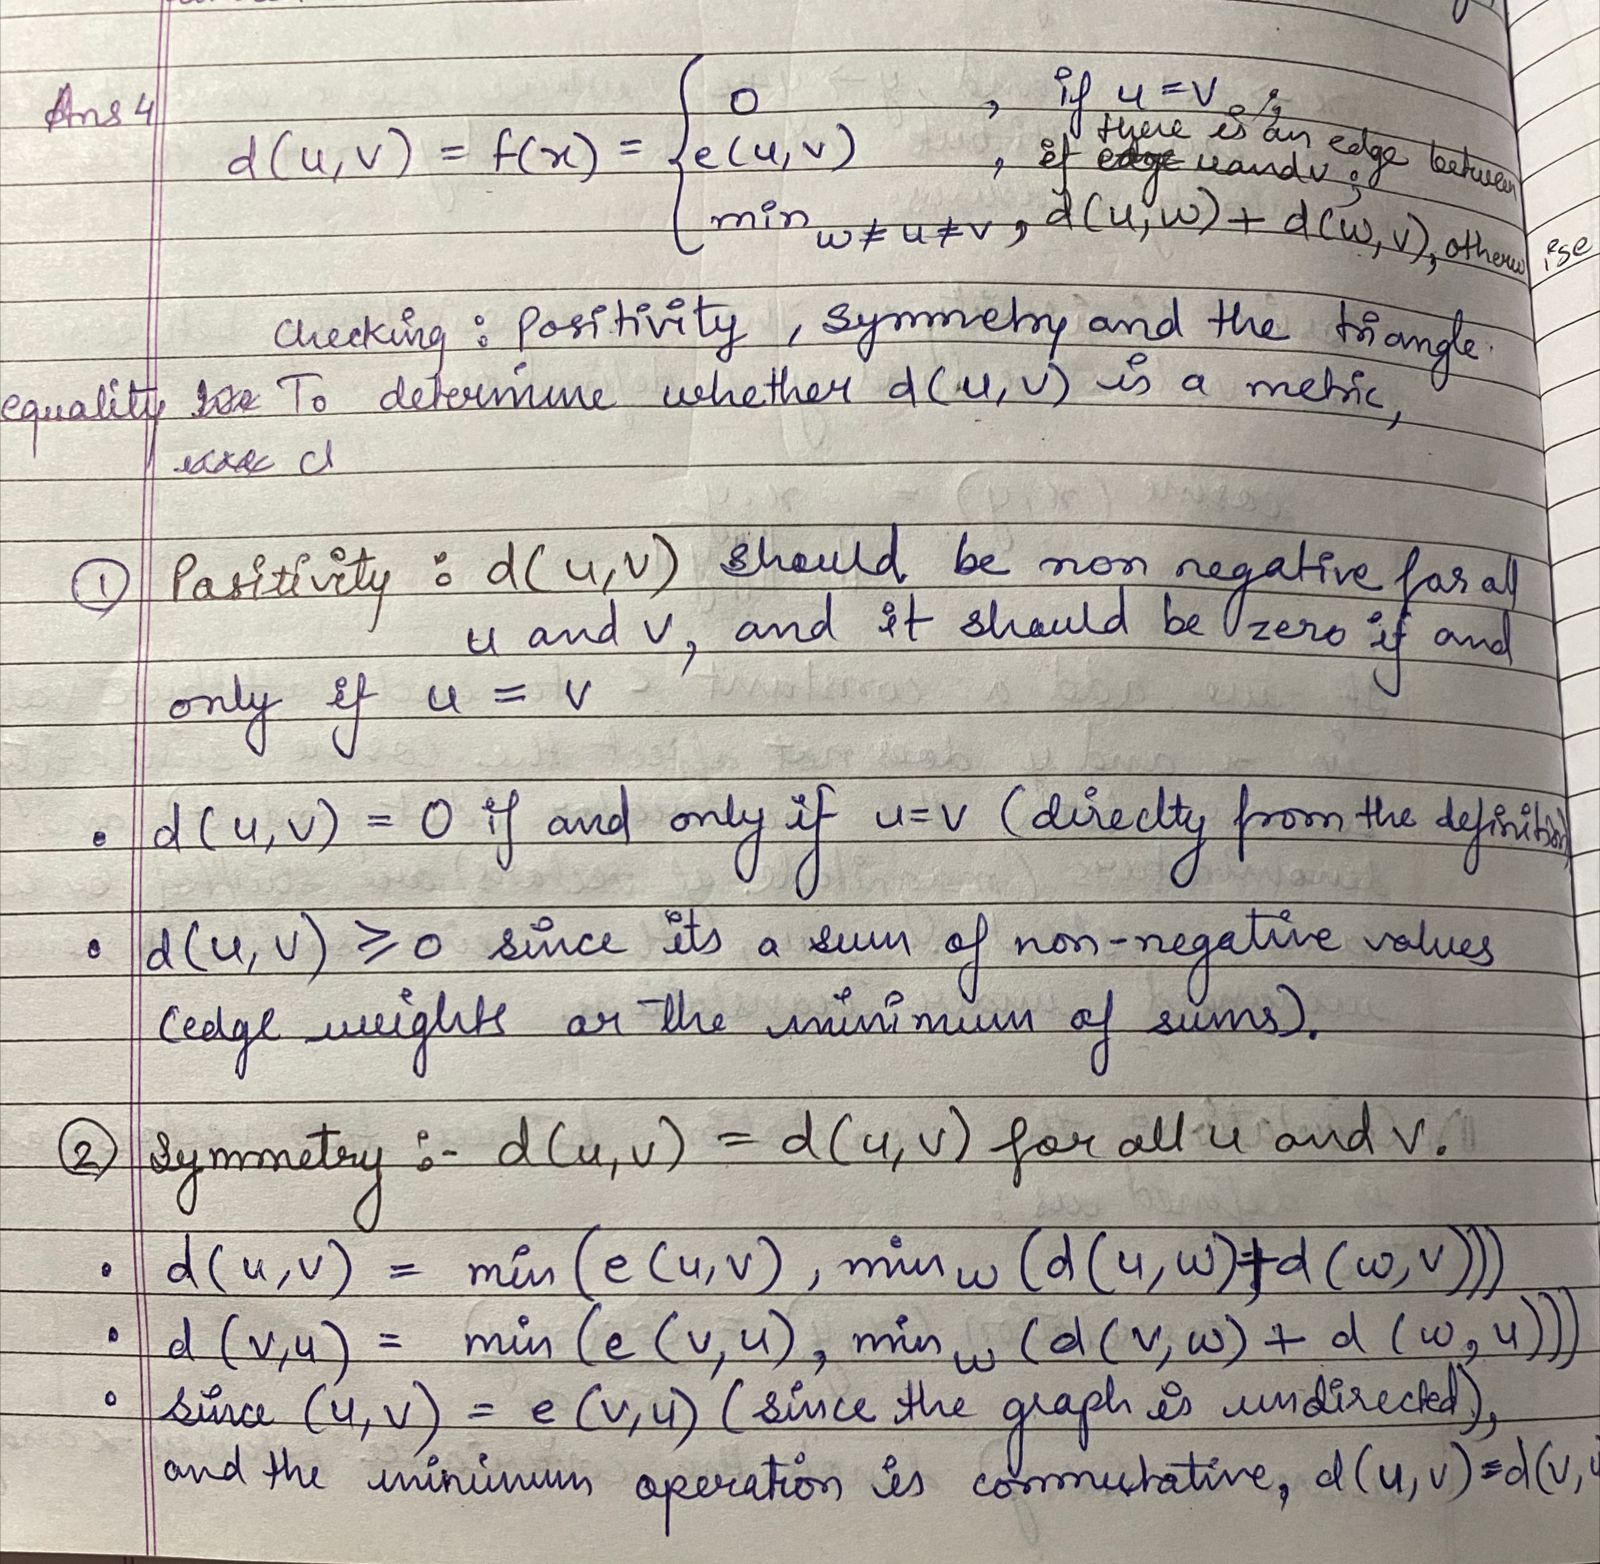 Ans 4
d(u,v) = f(x) = { 0 , if u = v ;
e(u,v) , if there is an edge between u and v ;
min w≠u≠v , d(u,w) + d(w,v), otherwise
Checking : Positivity , Symmetry and the triangle
equality To determine whether d(u,v) is a metric,
d
① Positivity : d(u,v) should be non negative for all
u and v, and it should be zero if and
only if u = v
• d(u,v) = 0 if and only if u=v (direclty from the definition)
• d(u,v) ≥ 0 since its a sum of non-negative values
(edge weights or the minimum of sums).
② Symmetry :- d(u,v) = d(u,v) for all u and v.
• d(u,v) = min(e(u,v), min w (d(u,w)+d(w,v)))
• d(v,u) = min(e(v,u), min w (d(v,w) + d(w,u)))
• since (u,v) = e(v,u) (since the graph is undirected),
and the minimum operation is commutative, d(u,v)=d(v,